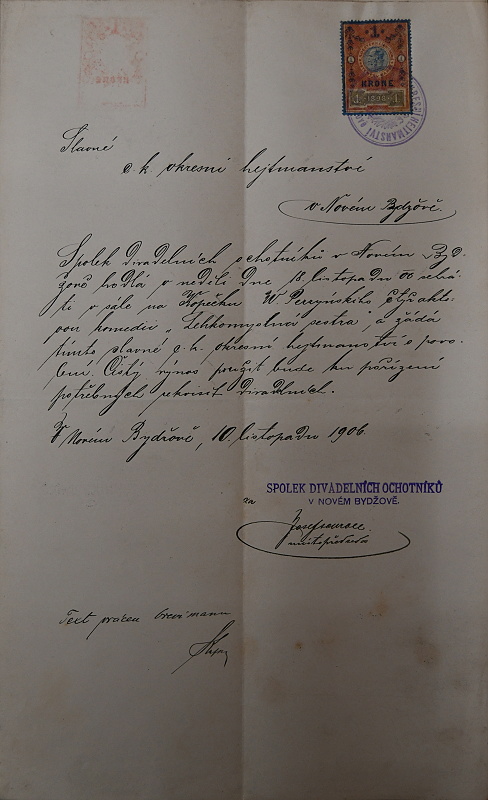 1
KRONE
1 1898 1
Slavné
c. k. okresní hejtmanství
v Novém Bydžově.
Spolek divadelních ochotníků v Novém Byd-
žově hodlá v neděli dne 18. listopadu sehrá-
ti v sále na Kopečku W. Perzyńského čtyřakto-
vou komedii „Lehkomyslná sestra“, a žádá
tímto slavné c. k. okresní hejtmanství o povo-
lení. Čistý výnos použit bude ku pořízení
potřebných rekvisit divadelních.
V Novém Bydžově, 10. listopadu 1906.
SPOLEK DIVADELNÍCH OCHOTNÍKŮ
V NOVÉM BYDŽOVĚ.
za
Josef
místopředseda
Text vrácen